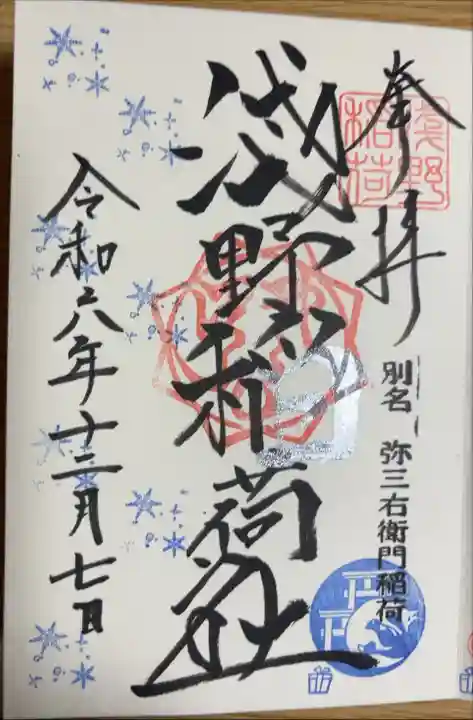 奉拝
淺野稲荷
別名 弥三右衛門稲荷
淺野稲荷社
令和六年十二月七日